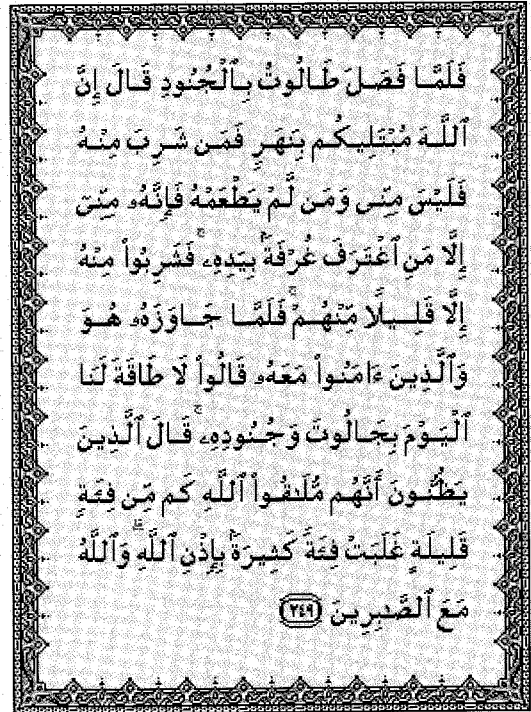 فَلَمَّا فَصَلَ طَالُوتُ بِٱلْجُنُودِ قَالَ إِنَّ
ٱللَّهَ مُبْتَلِيكُم بِنَهَرٍ فَمَن شَرِبَ مِنْهُ
فَلَيْسَ مِنِّى وَمَن لَّمْ يَطْعَمْهُ فَإِنَّهُۥ مِنِّىٓ
إِلَّا مَنِ ٱغْتَرَفَ غُرْفَةَۢ بِيَدِهِۦ ۚ فَشَرِبُوا۟ مِنْهُ
إِلَّا قَلِيلًا مِّنْهُمْ ۚ فَلَمَّا جَاوَزَهُۥ هُوَ
وَٱلَّذِينَ ءَامَنُوا۟ مَعَهُۥ قَالُوا۟ لَا طَاقَةَ لَنَا
ٱلْيَوْمَ بِجَالُوتَ وَجُنُودِهِۦ ۚ قَالَ ٱلَّذِينَ
يَظُنُّونَ أَنَّهُم مُّلَـٰقُوا۟ ٱللَّهِ كَم مِّن فِئَةٍ
قَلِيلَةٍ غَلَبَتْ فِئَةً كَثِيرَةَۢ بِإِذْنِ ٱللَّهِ ۗ وَٱللَّهُ
مَعَ ٱلصَّـٰبِرِينَ ٢٤٩